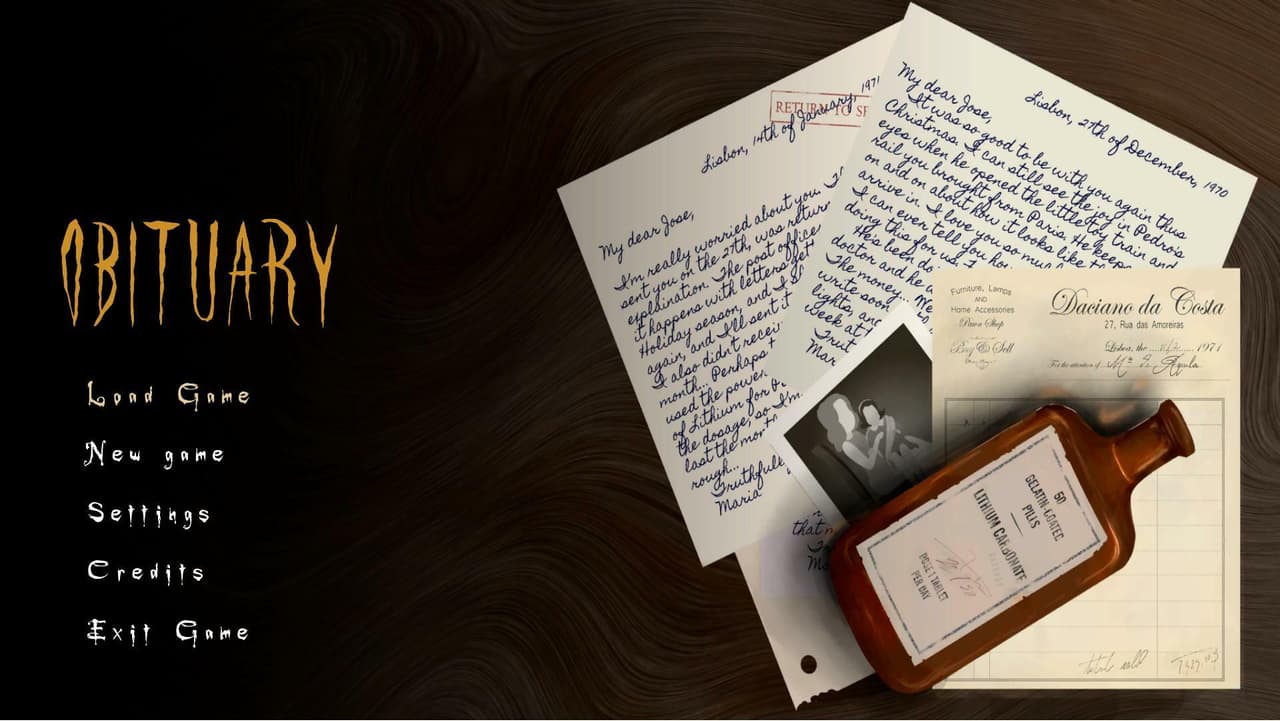 OBITUARY
Load Game
New game
Settings
Credits
Exit Game
RETURN TO
Lisbon, 14th of January, 1971
My dear Jose,
I'm really worried about you.
sent you on the 27th, was
explaination. The post office
it happens with letters
Holiday season, and I
again, and I'll sent it
I also didn't
month... Perhaps
used the power
of Lithium for
the dosage, so I'm
last the
rough...
Truthfully
Maria
Lisbon, 27th of December, 1970
My dear Jose,
It was so good to be with you again thus
Christmas. I can still see the joy in Pedro's
eyes when he opened the little toy train and
rail you brought from Paris. He keeps
on and on about how it looks like
arrive in. I love you so much
I can ever tell you
doing this for us.
He's been
doctor and he
The money...
write soon
lights, and
week at
Furniture, Lamps
AND
Home Accessories
Pawn Shop
Buy & Sell
Daciano da Costa
27, Rua das Amoreiras
Lisboa, the 1971
For the attention of
50
GELATIN-COATEC
PILLS
LITHIUM CARBONATE
DOSE 1 TABLET
PER DAY
that
total sold